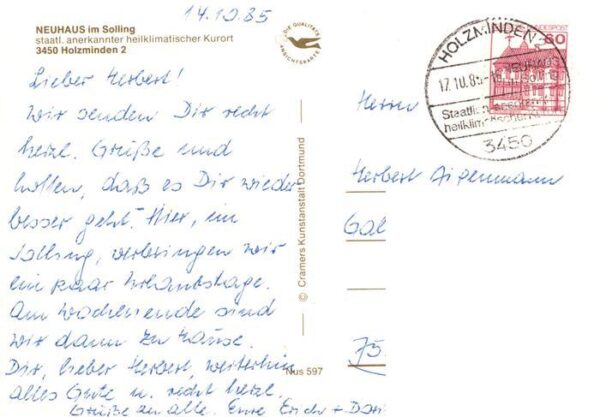 14.10.85
NEUHAUS im Solling
staatl. anerkannter heilklimatischer Kurort
3450 Holzminden 2
Lieber Herbert!
Wir senden Dir recht
herzl. Grüße und
hoffen, daß es Dir wieder
besser geht. Hier, im
Solling, verbringen wir
ein paar Urlaubstage.
Am Wochenende sind
wir dann zu Hause.
Dir, lieber Herbert, weiterhin
alles Gute u. recht herzl.
Grüße an alle. Eure Erich + Dori
DIE QUALITÄTS
ANSICHTSKARTE
© Cramers Kunstanstalt Dortmund
Nus 597
HOLZMINDEN 2
NEUHAUS
17.10.85-16
Staatlich anerkannter
heilklimatischer
3450
BUNDESPOST
60
Herrn
Herbert
Gal
75